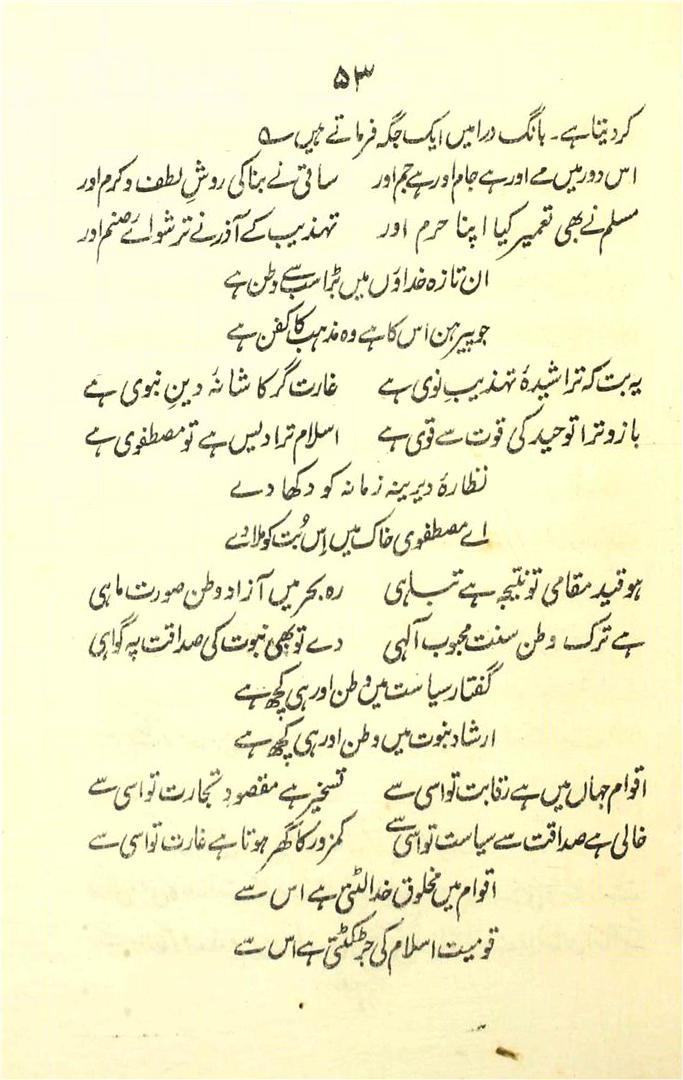 ۵۳
کردیتا ہے۔ بانگ درا میں ایک جگہ فرماتے ہیں ؎
اس دور میں مے اور ہے جام اور ہے جم اور ساقی نے بنا کی روشِ لطف و کرم اور
مسلم نے بھی تعمیر کیا اپنا حرم اور تہذیب کے آذر نے ترشوائے صنم اور
ان تازہ خداؤں میں بڑا سب سے وطن ہے
جو پیرہن اس کا ہے وہ مذہب کا کفن ہے
یہ بت کہ تراشیدۂ تہذیبِ نوی ہے غارت گر کاشانۂ دینِ نبوی ہے
بازو ترا توحید کی قوت سے قوی ہے اسلام ترا دیس ہے تو مصطفوی ہے
نظارۂ دیرینہ زمانہ کو دکھا دے
اے مصطفوی خاک میں اِس بُت کو ملا دے
ہو قید مقامی تو نتیجہ ہے تباہی رہ بحر میں آزاد وطن صورت ماہی
ہے ترک وطن سنت محبوب الٰہی دے تو بھی نبوت کی صداقت پہ گواہی
گفتار سیاست میں وطن اور ہی کچھ ہے
ارشاد نبوت میں وطن اور ہی کچھ ہے
اقوام جہاں میں ہے رقابت تو اسی سے تسخیر ہے مقصودِ تجارت تو اسی سے
خالی ہے صداقت سے سیاست تو اسی سے کمزور کا گھر ہوتا ہے غارت تو اسی سے
اقوام میں مخلوق خدا بٹتی ہے اس سے
قومیت اسلام کی جڑ کٹتی ہے اس سے